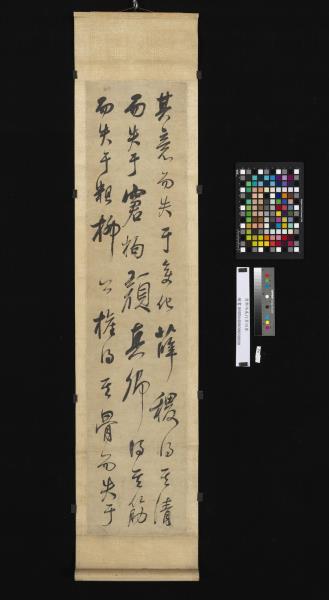 其意而失于变化薛稷得其清
而失于窘拘顔真卿得其筋
而失于粗柳公權得其骨而失于